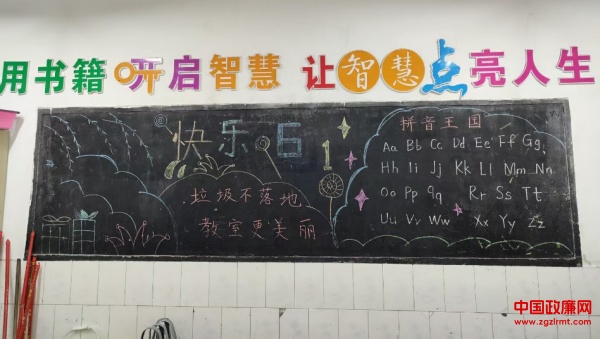 用书籍开启智慧 让智慧点亮人生
快乐 6 1
垃圾不落地
教室更美丽
拼音王国
Aa Bb Cc Dd Ee Ff Gg
Hh Ii Jj Kk Ll Mm Nn
Oo Pp Qq Rr Ss Tt
Uu Vv Ww Xx Yy Zz
中国政廉网
www.zgzlrmt.com